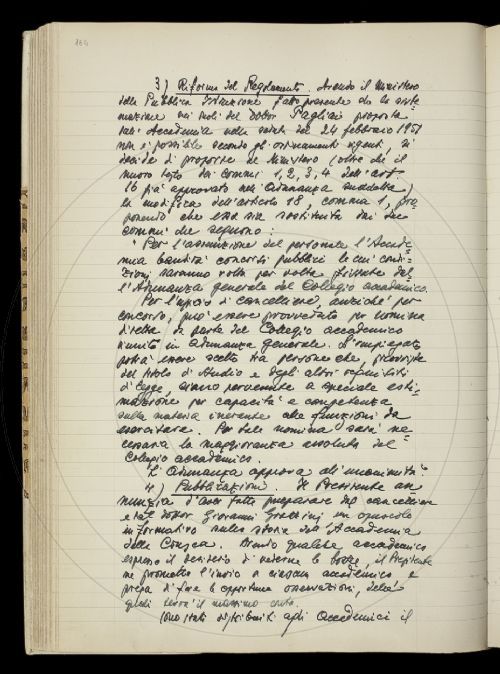 164
3) Riforma del Regolamento. Avendo il Ministero
della Pubblica Istruzione fatto presente che la siste=
mazione nei ruoli del Dottor Pagliai proposta
dall'Accademia nella seduta del 24 febbraio 1951
non è possibile secondo gli ordinamenti vigenti, si
decide di proporre al Ministero (oltre che il
nuovo testo dei commi 1, 2, 3, 4 dell'art.
16 già approvato nell'Adunanza suddetta)
la modifica dell'articolo 18, comma 1, pro
ponendo che esso sia sostituito dai due
commi che seguono:
"Per l'assunzione del personale l'Accade=
mia bandirà concorsi pubblici le cui condi=
zioni saranno volta per volta fissate dal=
l'Adunanza generale del Collegio accademico.
Per l'ufficio di cancelliere, anziché per
concorso, può essere provveduto per nomina
diretta da parte del Collegio accademico
riunito in adunanza generale. L'impiegato
potrà essere scelto tra persone che, provviste
del titolo di studio e degli altri requisiti
di legge, siano pervenute a speciale esti=
mazione per capacità e competenza
sulla materia inerente alle funzioni da
esercitare. Per tale nomina sarà ne
cessaria la maggioranza assoluta del
Collegio accademico.
L'Adunanza approva all'unanimità"
4) Pubblicazione. Il Presidente an
nunzia d'aver fatto preparare dal cancelliere
e dal dottor Giovanni Grazzini un opuscolo
informativo sulla storia dell'Accademia
della Crusca. Avendo qualche accademico
espresso il desiderio di vederne le bozze, il Presidente
ne promette l'invio a ciascun accademico e
prega di fare le opportune osservazioni, delle
quali terrà il massimo conto.
Sono stati distribuiti agli Accademici il